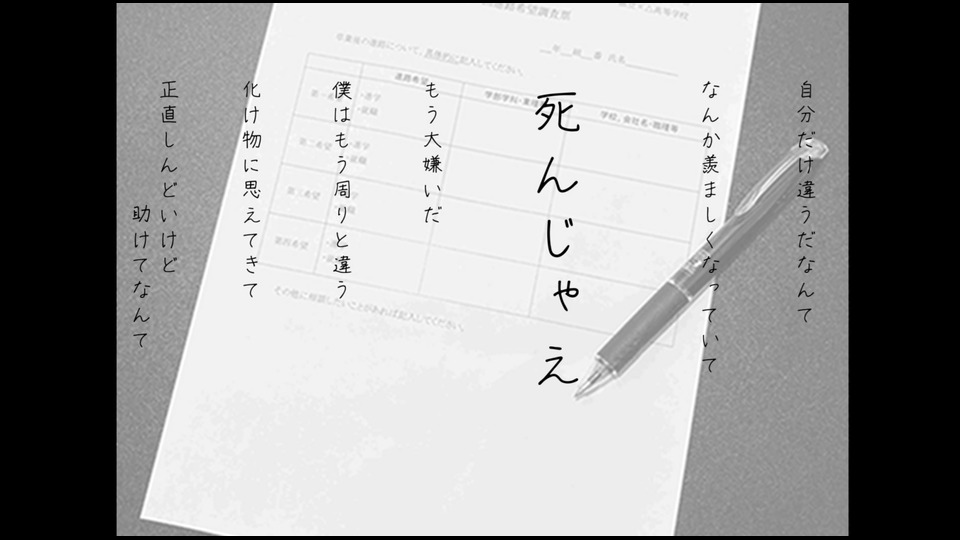 自分だけ違うだなんて
なんか羨ましくなっていて
死んじゃえ
もう大嫌いだ
僕はもう周りと違う
化け物に思えてきて
正直しんどいけど
助けてなんて
路希望調査票
卒業後の進路について、具体的に記入してください。
年 組 番 氏名
進路希望
学校、会社名・職種等
第一希望
・進学
・就職
第二希望
・進学
・就職
第三希望
・進学
・就職
第四希望
・進学
・就職
その他に相談したいことがあれば記入してください。